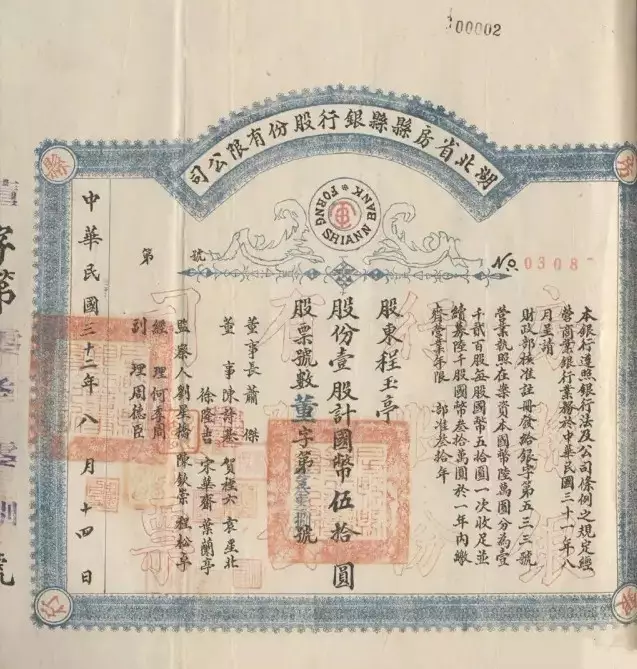 00002
湖北省房縣縣銀行股份有限公司
FORNG SHIANN BANK
No. 0308
第 號
本銀行遵照銀行法及公司條例之規定經
營商業銀行業務於中華民國三十一年八
月呈請
財政部核准註冊發給銀字第五三三號
營業執照在案資本國幣陸萬圓分為壹
千貳百股每股國幣五拾圓一次收足並
續募陸千股國幣叁拾萬圓於一年內繳
齊營業年限 部准叁拾年
股東程玉亭
股份壹股計國幣伍拾圓
股票號數董字第 號
董事長蕭傑
董事陳詩基 賀極六 袁星北
徐隆吉 宋華齋 葉蘭亭
監察人劉星橋 陳欽崇 程松亭
經理何秀周
副理周德臣
中華民國三十二年八月十四日
字第
號